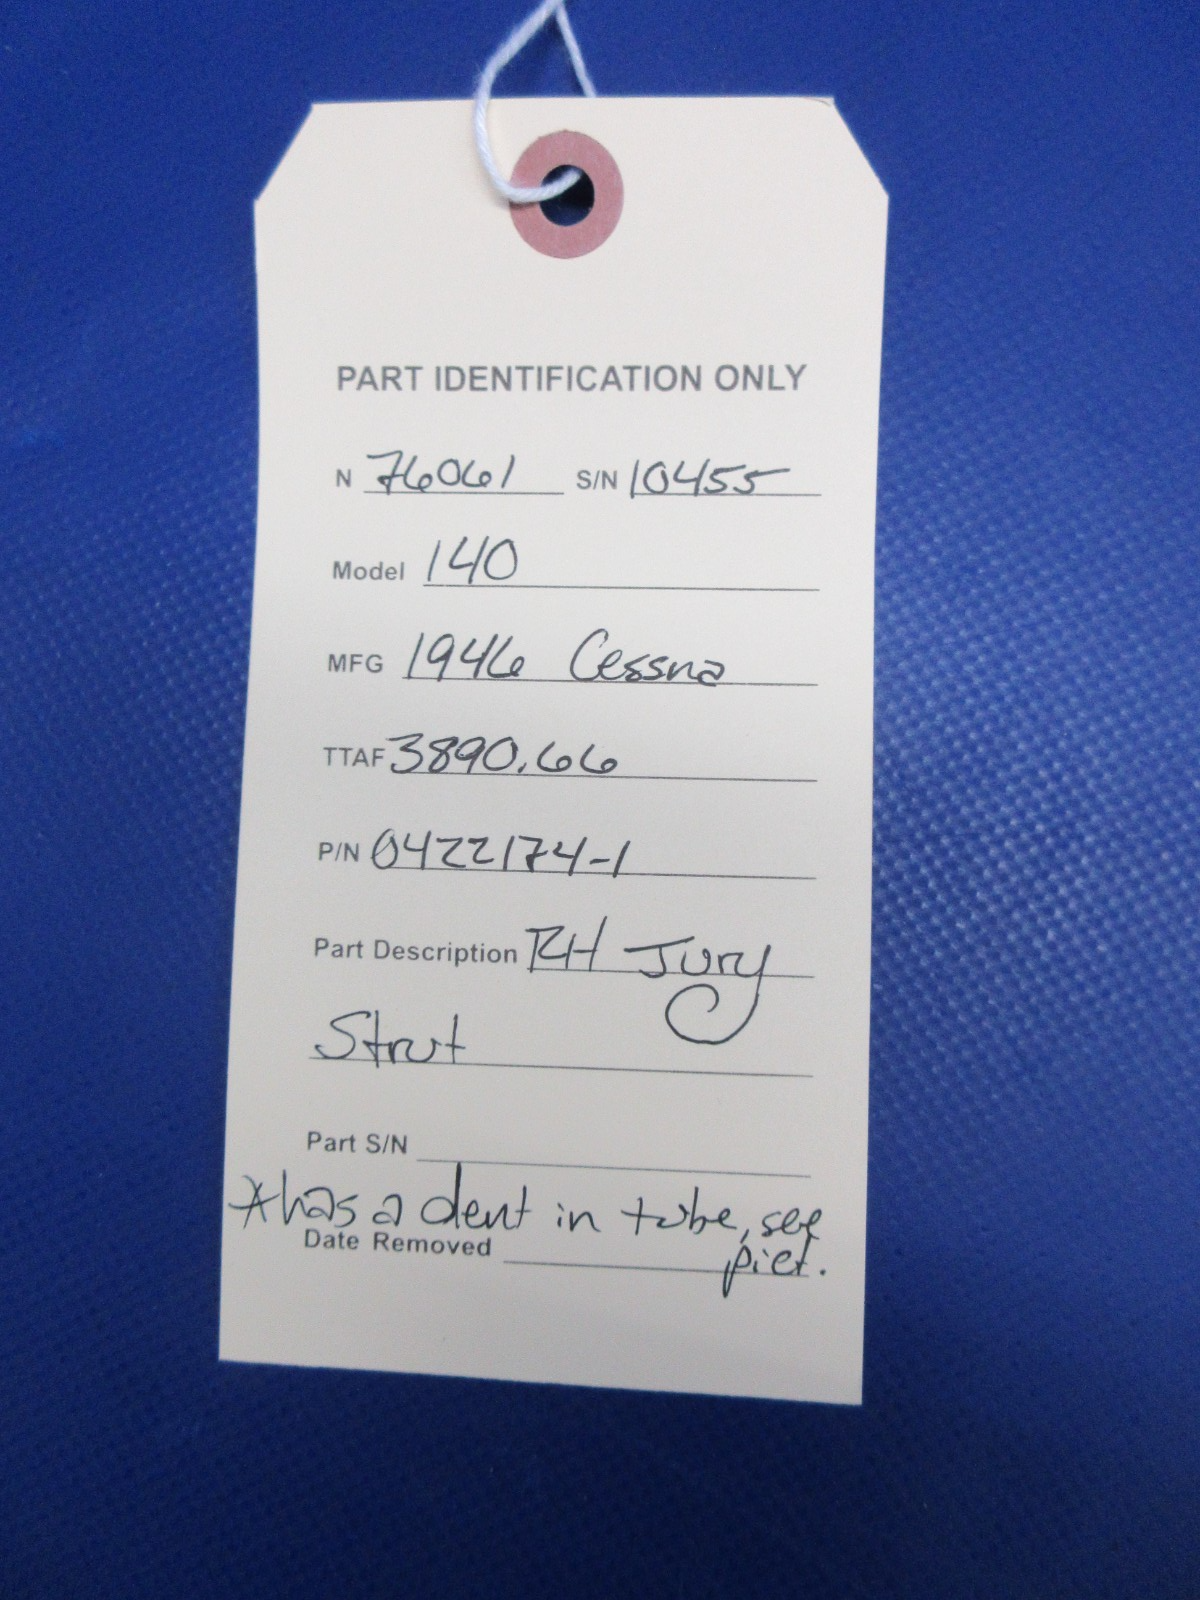 PART IDENTIFICATION ONLY
N 76061 S/N 10455
Model 140
MFG 1946 Cessna
TTAF 3890.66
P/N 0422174-1
Part Description RH Jury
Strut
Part S/N
*has a dent in tube, see
pict.
Date Removed